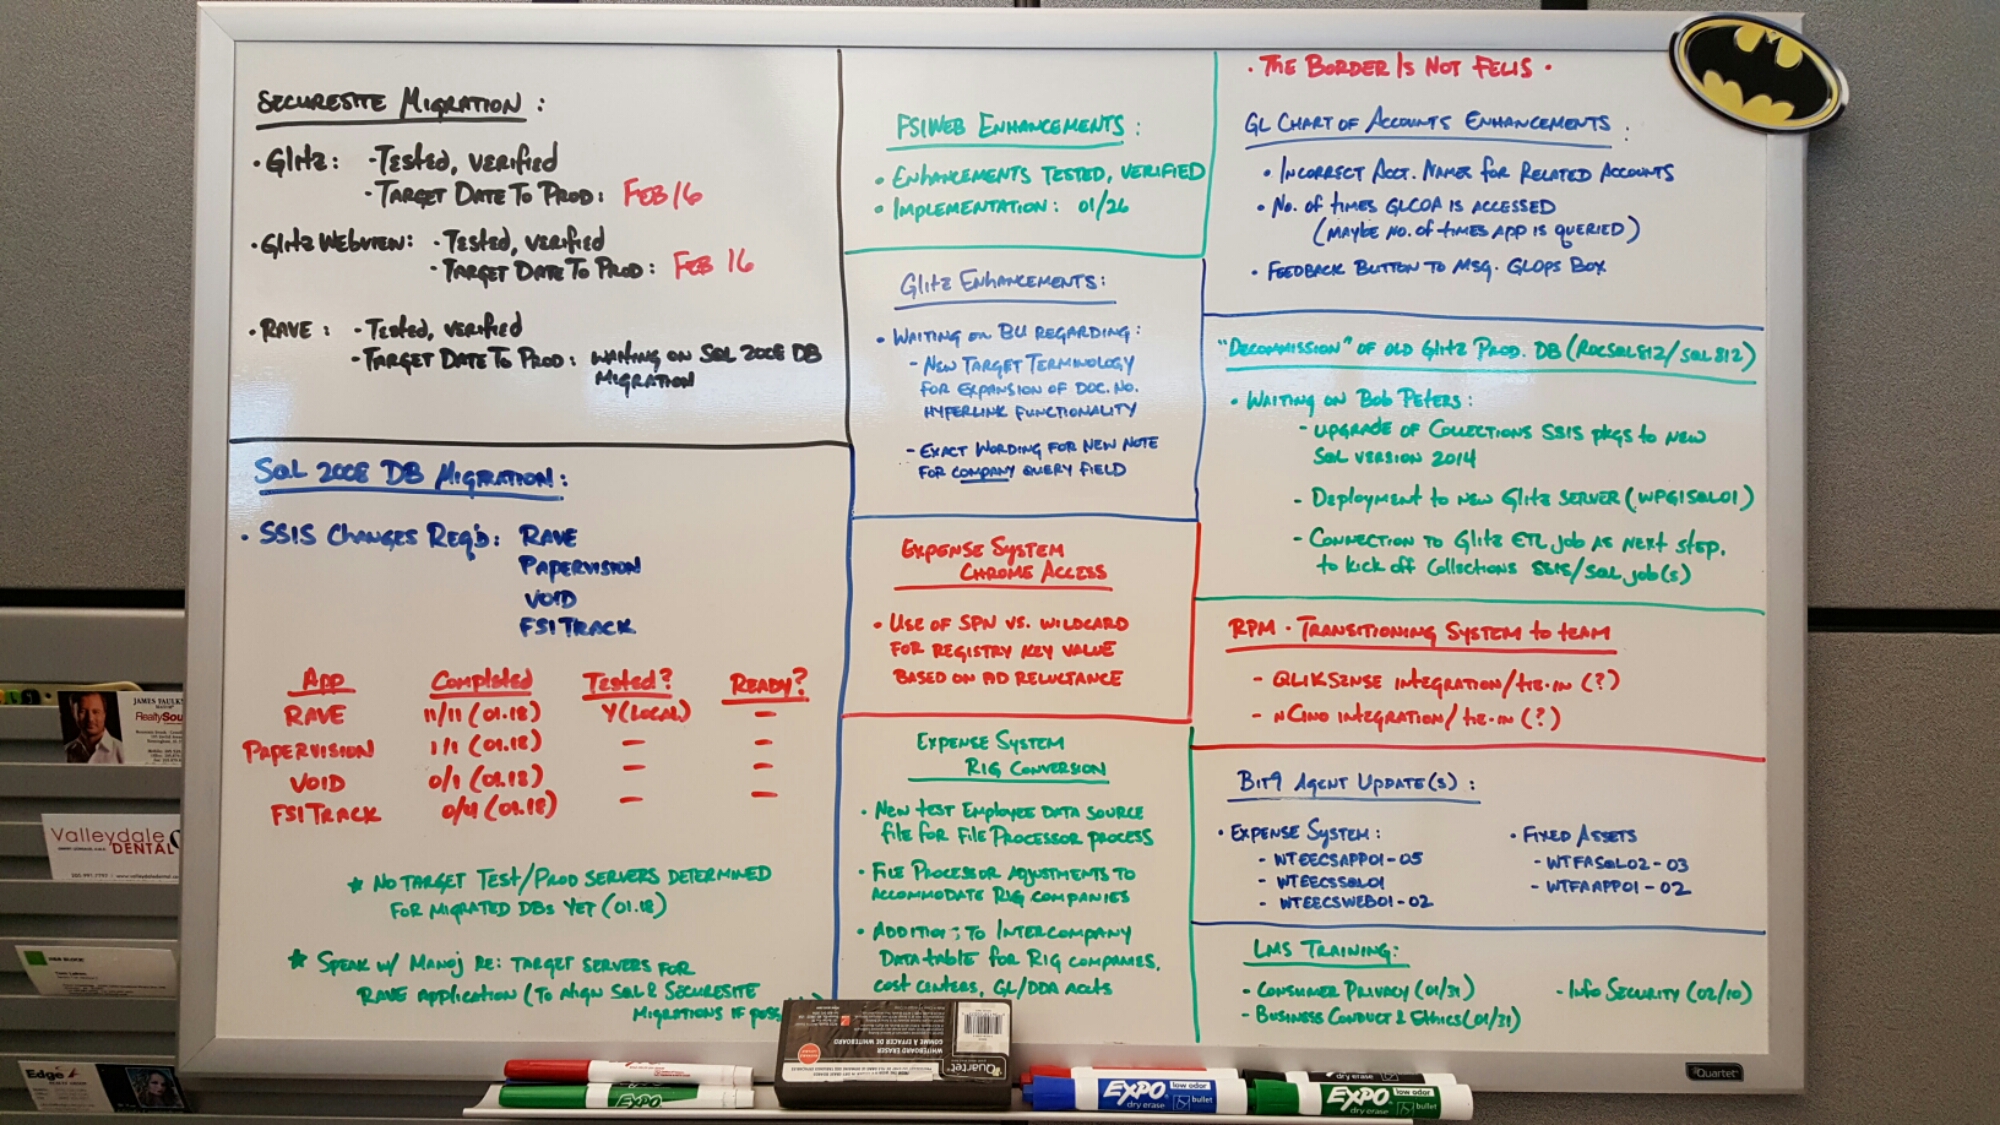 SECURESITE MIGRATION :
• Glitz : - Tested, verified
- TARGET DATE TO PROD : FEB 16
• Glitz WEBVIEW : - Tested, verified
- TARGET DATE TO PROD : FEB 16
• RAVE : - Tested, verified
- TARGET DATE TO PROD : WAITING ON SQL 2008 DB
MIGRATION
SQL 2008 DB MIGRATION :
• SSIS CHANGES REQ'D : RAVE
PAPERVISION
VOID
FSITRACK
APP Completed Tested? READY?
RAVE 11/11 (01.18) Y (LOCAL) –
PAPERVISION 1/1 (01.18) – –
VOID 0/1 (01.18) – –
FSITRACK 0/4 (01.18) – –
★ NO TARGET TEST/PROD SERVERS DETERMINED
FOR MIGRATED DBs YET (01.18)
★ SPEAK w/ MANOJ RE: TARGET SERVERS FOR
RAVE APPLICATION (TO ALIGN SQL & SECURESITE
MIGRATIONS IF
FSIWEB ENHANCEMENTS :
• ENHANCEMENTS TESTED, VERIFIED
• IMPLEMENTATION : 01/26
Glitz ENHANCEMENTS :
• WAITING ON BU REGARDING :
- NEW TARGET TERMINOLOGY
FOR EXPANSION OF DOC. NO.
HYPERLINK FUNCTIONALITY
- EXACT WORDING FOR NEW NOTE
FOR COMPANY QUERY FIELD
EXPENSE SYSTEM
CHROME ACCESS
• USE OF SPN VS. WILDCARD
FOR REGISTRY KEY VALUE
BASED ON AD RELUCTANCE
EXPENSE SYSTEM
RIG CONVERSION
• NEW TEST EMPLOYEE DATA SOURCE
FILE FOR FILE PROCESSOR PROCESS
• FILE PROCESSOR ADJUSTMENTS TO
ACCOMMODATE RIG COMPANIES
• ADDITIONS TO INTERCOMPANY
DATATABLE FOR RIG COMPANIES,
COST CENTERS, GL/DDA ACCTS
• THE BORDER IS NOT FELIS •
GL CHART OF ACCOUNTS ENHANCEMENTS :
• INCORRECT ACCT. NAMES FOR RELATED ACCOUNTS
• NO. OF TIMES GLCOA IS ACCESSED
(MAYBE NO. OF TIMES APP IS QUERIED)
• FEEDBACK BUTTON TO MSG. GLOPS BOX
"DECOMMISSION" OF OLD Glitz PROD. DB (ROCSQL812/SQL812)
• WAITING ON BOB PETERS :
- UPGRADE OF COLLECTIONS SSIS PKGS TO NEW
SQL VERSION 2014
- DEPLOYMENT TO NEW Glitz SERVER (WPGISQL01)
- CONNECTION TO Glitz ETL JOB AS NEXT STEP,
TO KICK OFF COLLECTIONS SSIS/SQL JOB(S)
RPM - TRANSITIONING SYSTEM TO TEAM
- QLIKSENSE INTEGRATION/TIE-IN (?)
- nCINO INTEGRATION/TIE-IN (?)
BIT9 AGENT UPDATE(S) :
• EXPENSE SYSTEM :
- WTEECSAPP01-05
- WTEECSSQL01
- WTEECSWEB01-02
• FIXED ASSETS
- WTFASQL02-03
- WTFAAPP01-02
LMS TRAINING :
- CONSUMER PRIVACY (01/31)
- BUSINESS CONDUCT & ETHICS (01/31)
- INFO SECURITY (02/10)
Quartet
JAMES FAULK
RealtySou
Valleydale
DENTAL
Edge
WHITEBOARD ERASER
GOMME À EFFACER DE WHITEBOARD
Quartet
EXPO
EXPO low odor
dry erase bullet
dry erase
EXPO low odor
dry erase bullet